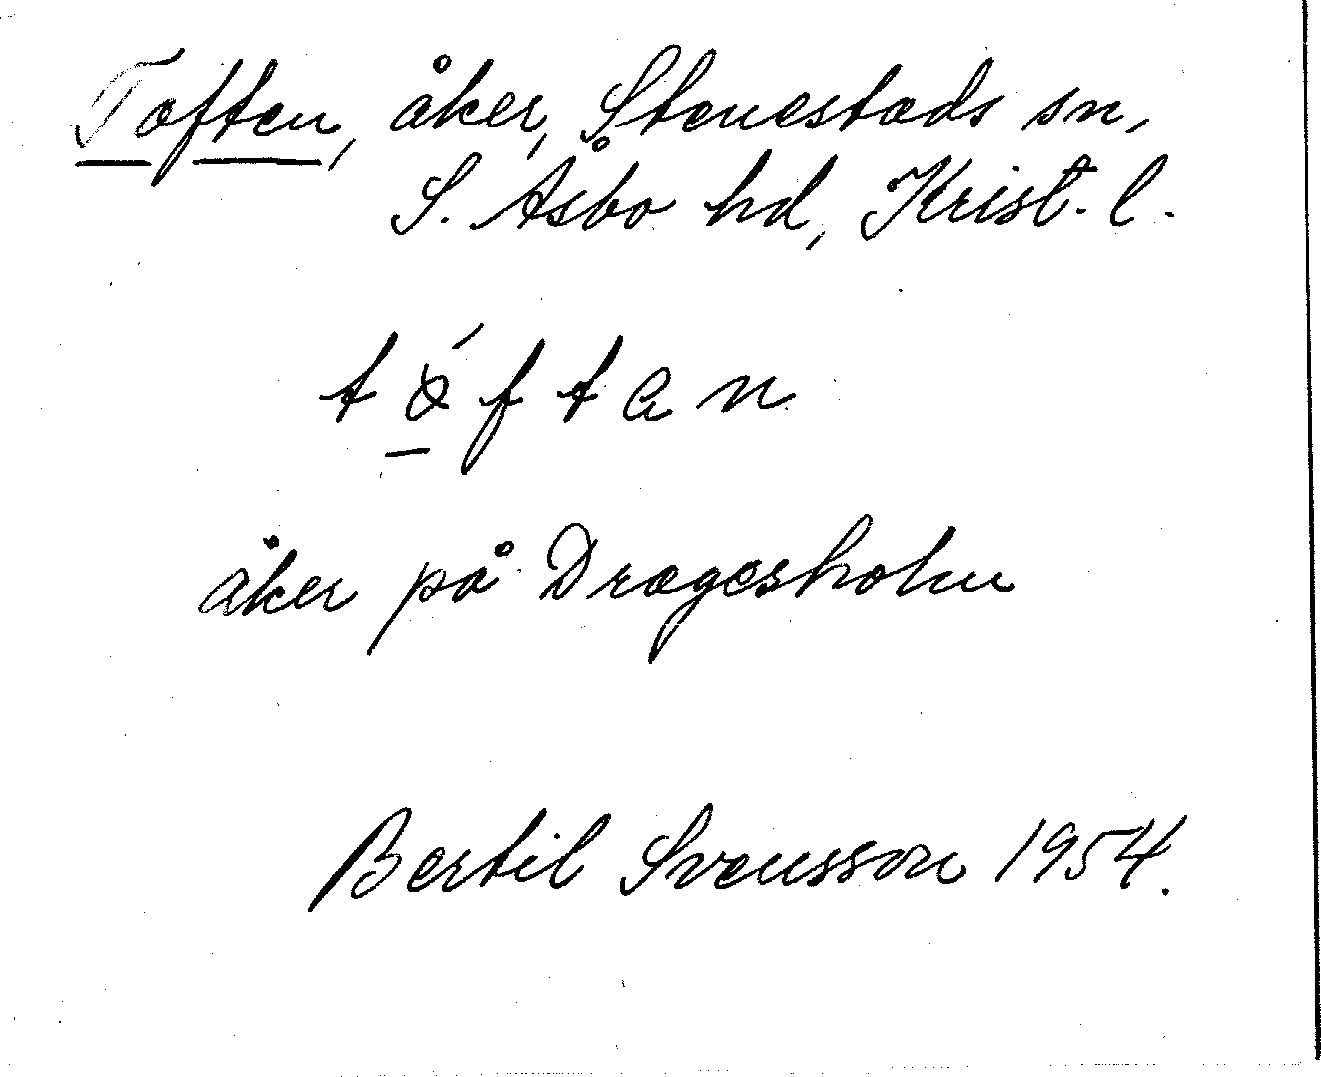 Toften, åker, Stenestads sn,
S. Åsbo hd, Krist. l.
åker på Dragesholm
Bertil Svensson 1954.